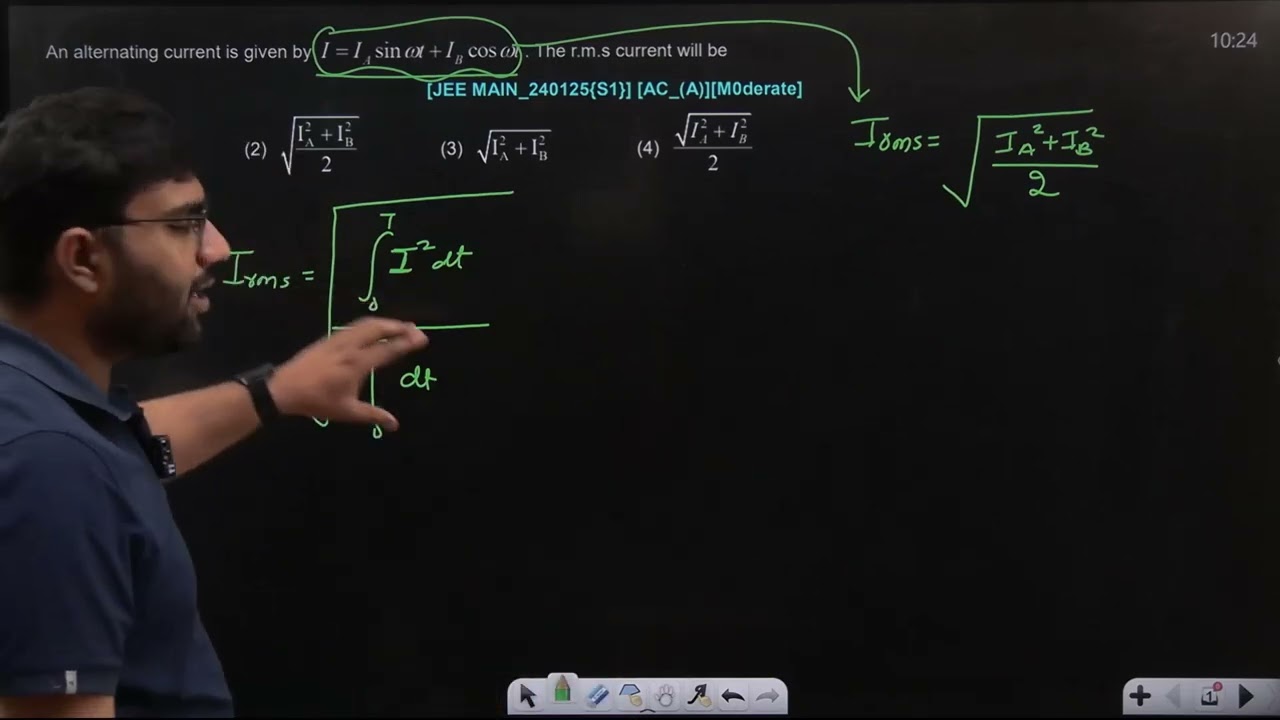 An alternating current is given by I = I_A sin ωt + I_B cos ωt. The r.m.s current will be
10:24
[JEE MAIN_240125{S1}] [AC_(A)][M0derate]
(2) √((I_A^2 + I_B^2)/2) (3) √(I_A^2 + I_B^2) (4) √(I_A^2 + I_B^2)/2
Irms = √((I_A^2 + I_B^2)/2)
Irms = √(∫_0^T I^2 dt / ∫_0 dt)
1